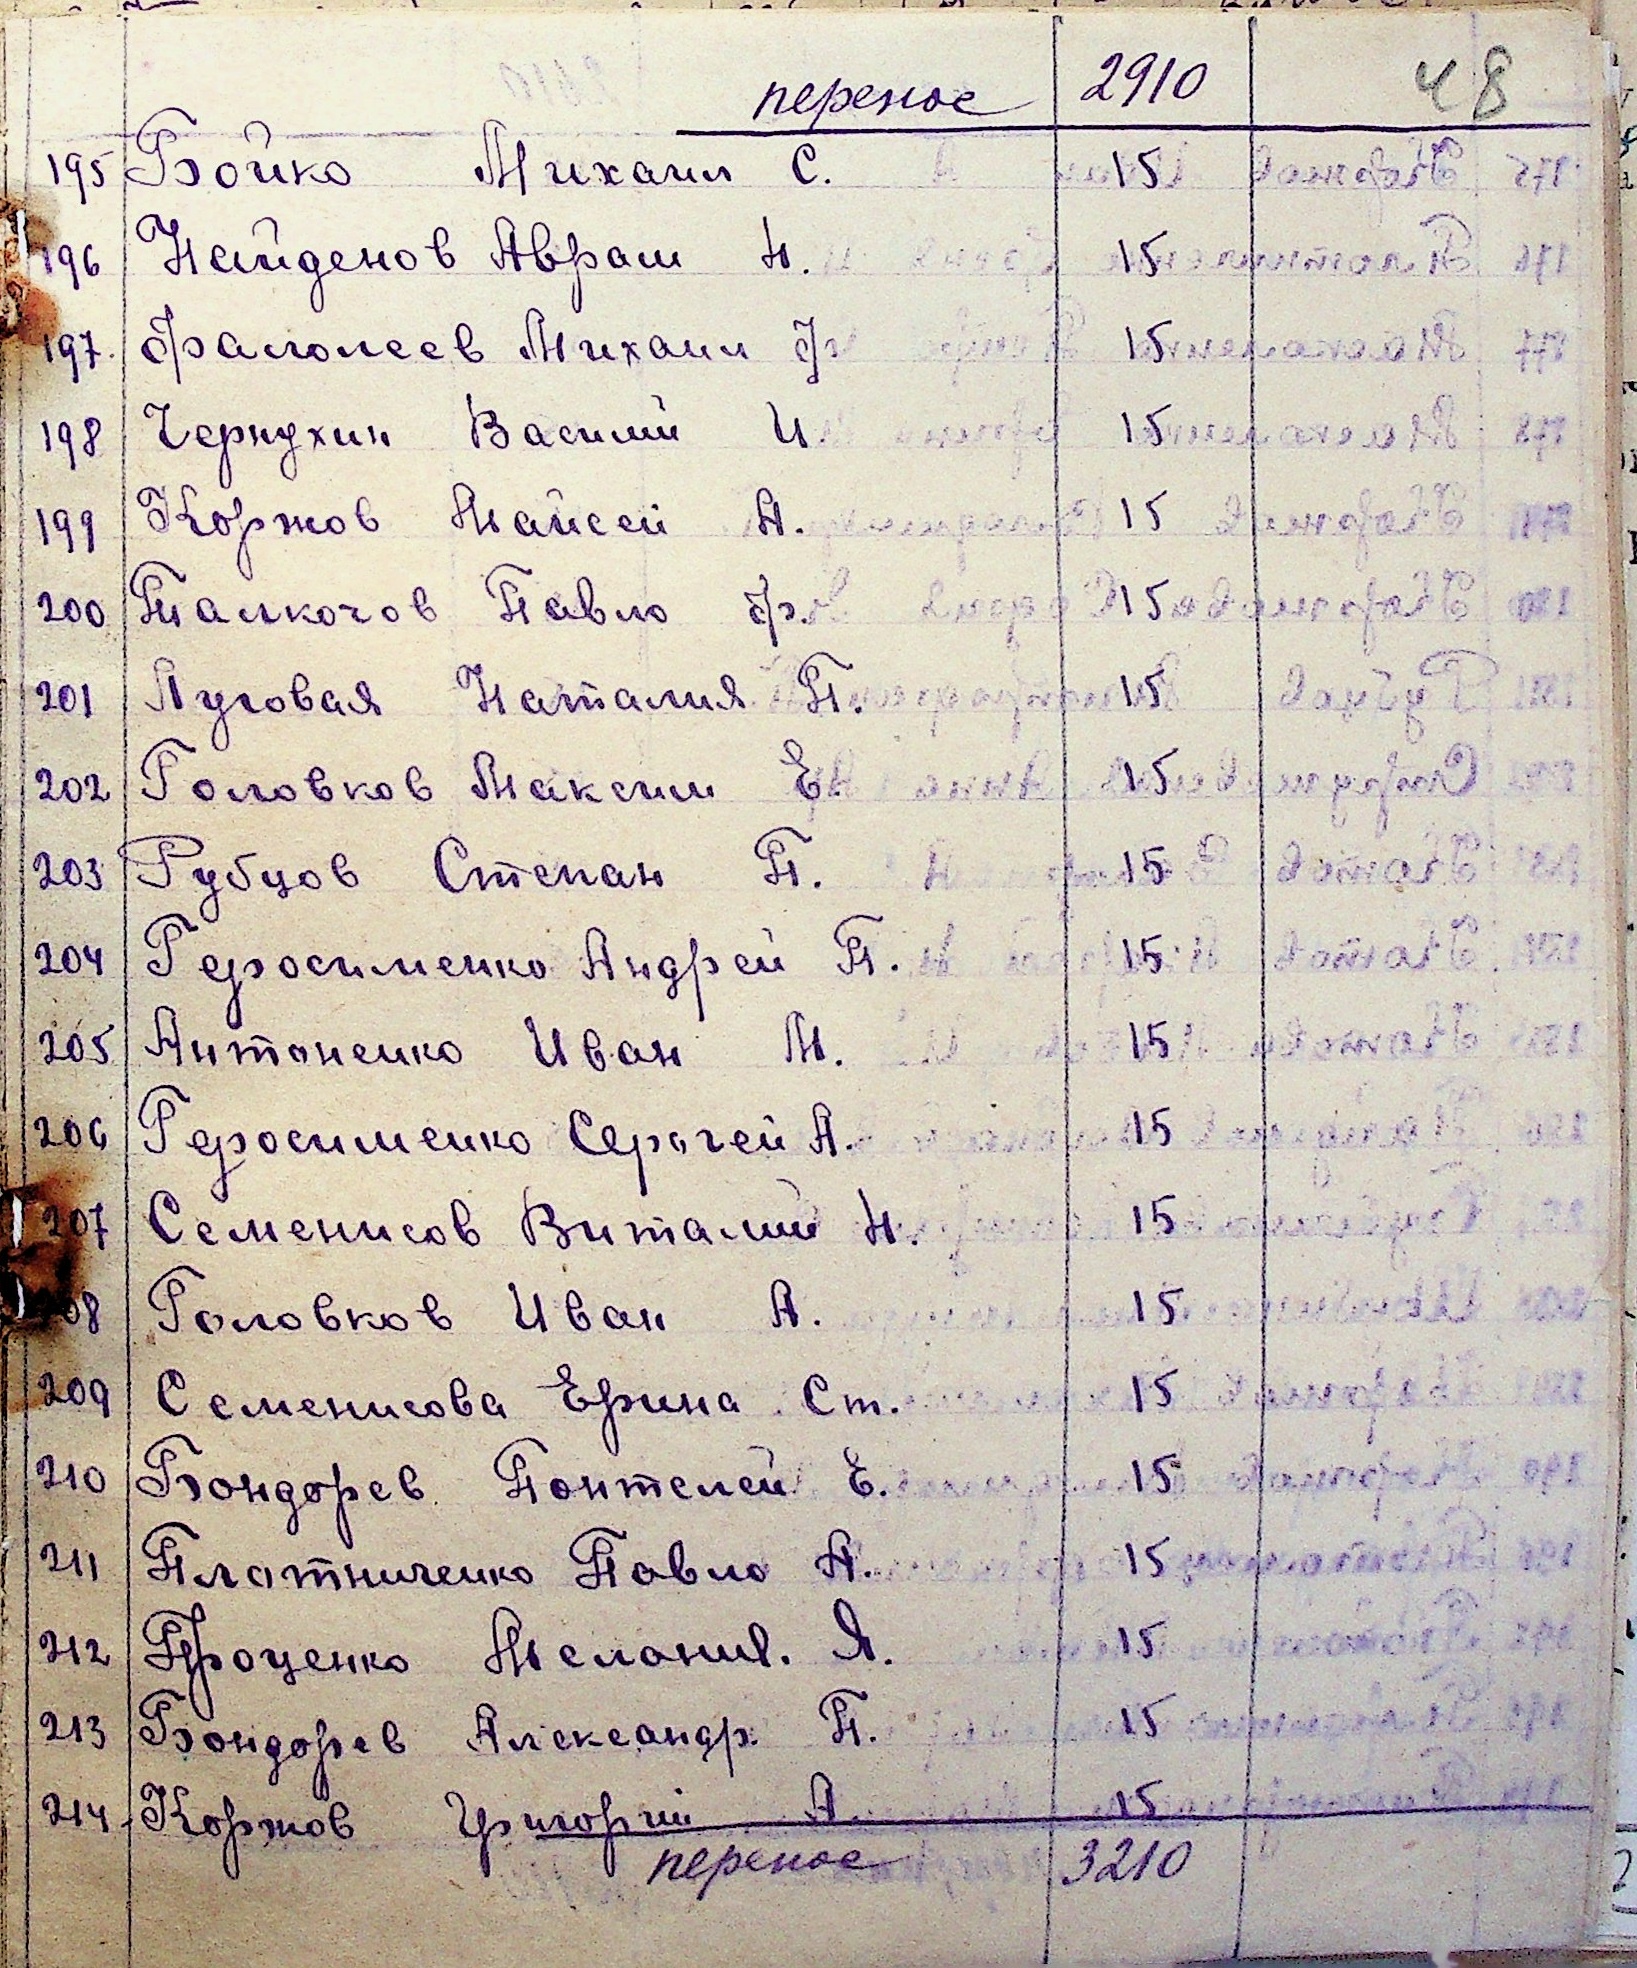 перенос 2910 48
195 Бойко Михаил С. 15
196 Найденов Аврам Н. 15
197 Фалолеев Михаил Ф 15
198 Чернухин Василий И 15
199 Коржов Майсей А. 15
200 Толкочов Павло Фр. 15
201 Луговая Наталия П. 15
202 Головков Максим Е 15
203 Рубцов Степан П. 15
204 Геросименко Андрей П. 15
205 Антоненко Иван М. 15
206 Геросименко Сергей А. 15
207 Семенисов Виталий Н. 15
208 Головков Иван А. 15
209 Семенисова Ерина Ст. 15
210 Бондорев Понтелей Е. 15
211 Плотниченко Павло А. 15
212 Проценко Мелания. Я. 15
213 Бондорев Александр П. 15
214 Коржов Григорий А. 15
перенос 3210